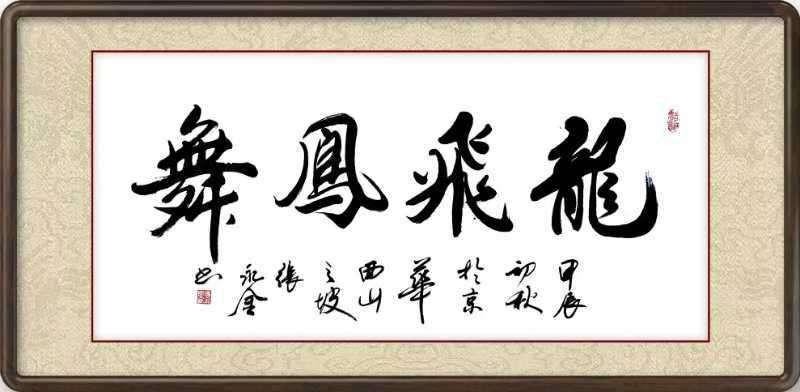 龍飛鳳舞
甲辰初秋於京華西山之坡張永金书